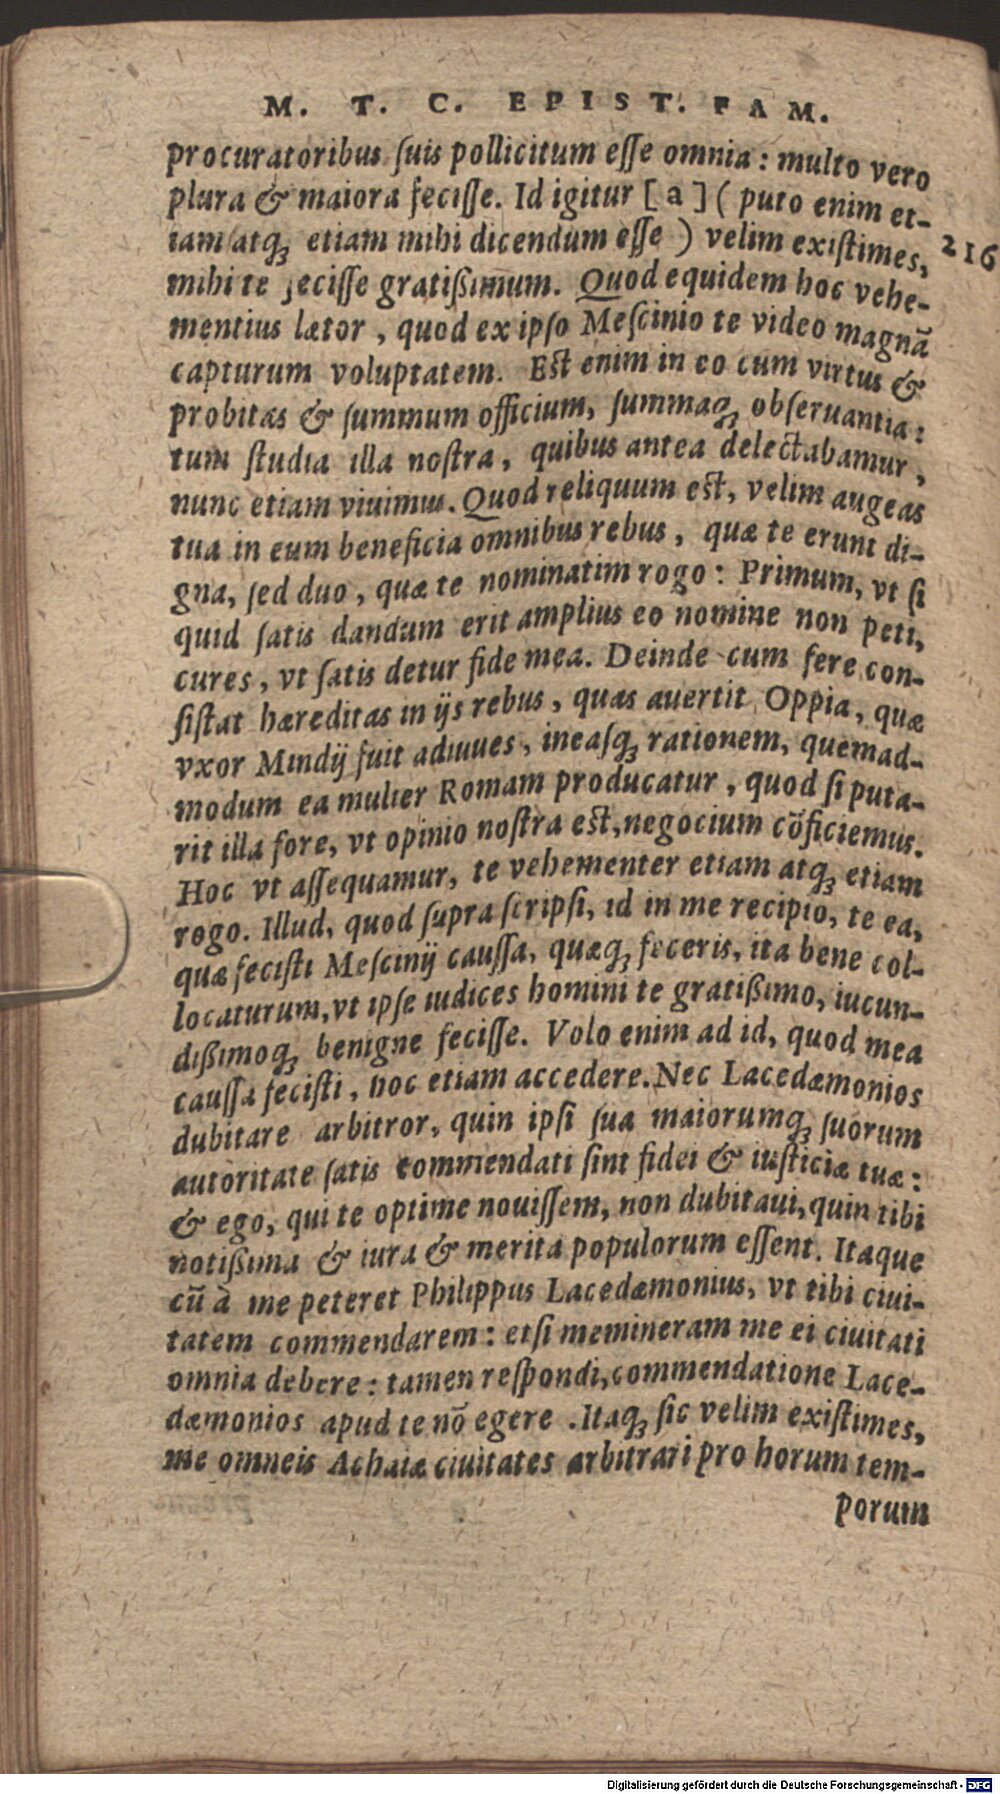 M. T. C. EPIST. FAM.
procuratoribus ſuis pollicitum eſſe omnia: multo vero
plura & maiora feciſſe. Id igitur [a] (puto enim et-
iam atq; etiam mihi dicendum eſſe) velim exiſtimes,
216
mihi te feciſſe gratißimum. Quod equidem hoc vehe-
mentius lætor, quod ex ipſo Meſcinio te video magnā
capturum voluptatem. Est enim in eo cum virtus &
probitas & ſummum officium, ſummaq; obſeruantia:
tum ſtudia illa noſtra, quibus antea delectabamur,
nunc etiam viuimus. Quod reliquum est, velim augeas
tua in eum beneficia omnibus rebus, quæ te erunt di-
gna, ſed duo, quæ te nominatim rogo: Primum, vt ſi
quid ſatis dandum erit amplius eo nomine non peti,
cures, vt ſatis detur fide mea. Deinde cum fere con-
ſiſtat hæreditas in ijs rebus, quas auertit Oppia, quæ
vxor Mindij fuit adiuues, ineaſq; rationem, quemad-
modum ea mulier Romam producatur, quod ſi puta-
rit illa fore, vt opinio noſtra est, negocium cōficiemus.
Hoc vt aſſequamur, te vehementer etiam atq; etiam
rogo. Illud, quod ſupra ſcripſi, id in me recipio, te ea,
quæ feciſti Meſcinij cauſſa, quæq; feceris, ita bene col-
locaturum, vt ipſe iudices homini te gratißimo, iucun-
dißimoq; benigne feciſſe. Volo enim ad id, quod mea
cauſſa feciſti, hoc etiam accedere. Nec Lacedæmonios
dubitare arbitror, quin ipſi ſua maiorumq; ſuorum
autoritate ſatis commendati ſint fidei & iuſticiæ tuæ:
& ego, qui te optime nouiſſem, non dubitaui, quin tibi
notißima & iura & merita populorum eſſent. Itaque
cū à me peteret Philippus Lacedæmonius, vt tibi ciui-
tatem commendarem: etſi memineram me ei ciuitati
omnia debere: tamen reſpondi, commendatione Lace-
dæmonios apud te nō egere. Itaq; ſic velim exiſtimes,
me omneis Achaiæ ciuitates arbitrari pro horum tem-
porum
Digitalisierung gefördert durch die Deutsche Forschungsgemeinschaft - DFG